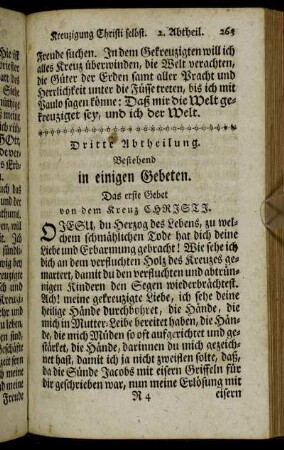 Kreuzigung Christi selbst. 2. Abtheil. 263
Freude suchen. In dem Gekreuzigten will ich
alles Kreuz überwinden, die Welt verachten,
die Güter der Erden samt aller Pracht und
Herrlichkeit unter die Füsse treten, bis ich mit
Paulo sagen könne: Daß mir die Welt ge-
kreuziget sey, und ich der Welt.
Dritte Abtheilung.
Bestehend
in einigen Gebeten.
Das erste Gebet
von dem Kreuz CHRISTI.
O JESU, du Herzog des Lebens, zu wel-
chem schmählichen Tode hat dich deine
Liebe und Erbarmung gebracht! Wie sehe ich
dich an dem verfluchten Holz des Kreuzes ge-
martert, damit du den verfluchten und abtrün-
nigen Kindern den Segen wiederbrächtest.
Ach! meine gekreuzigte Liebe, ich sehe deine
heilige Hände durchbohret, die Hände, die
mich in Mutter-Leibe bereitet haben, die Hän-
de, die mich Müden so oft aufgerichtet und ge-
stärket, die Hände, darinnen du mich gezeich-
net hast, damit ich ja nicht zweiflen solte, daß,
da die Sünde Jacobs mit eisern Griffeln für
dir geschrieben war, nun meine Erlösung mit
R 4 eisern